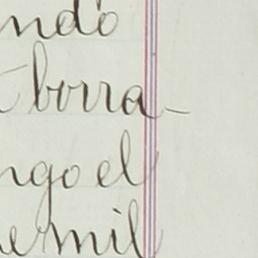 ndo
borra-
ngo el
mil